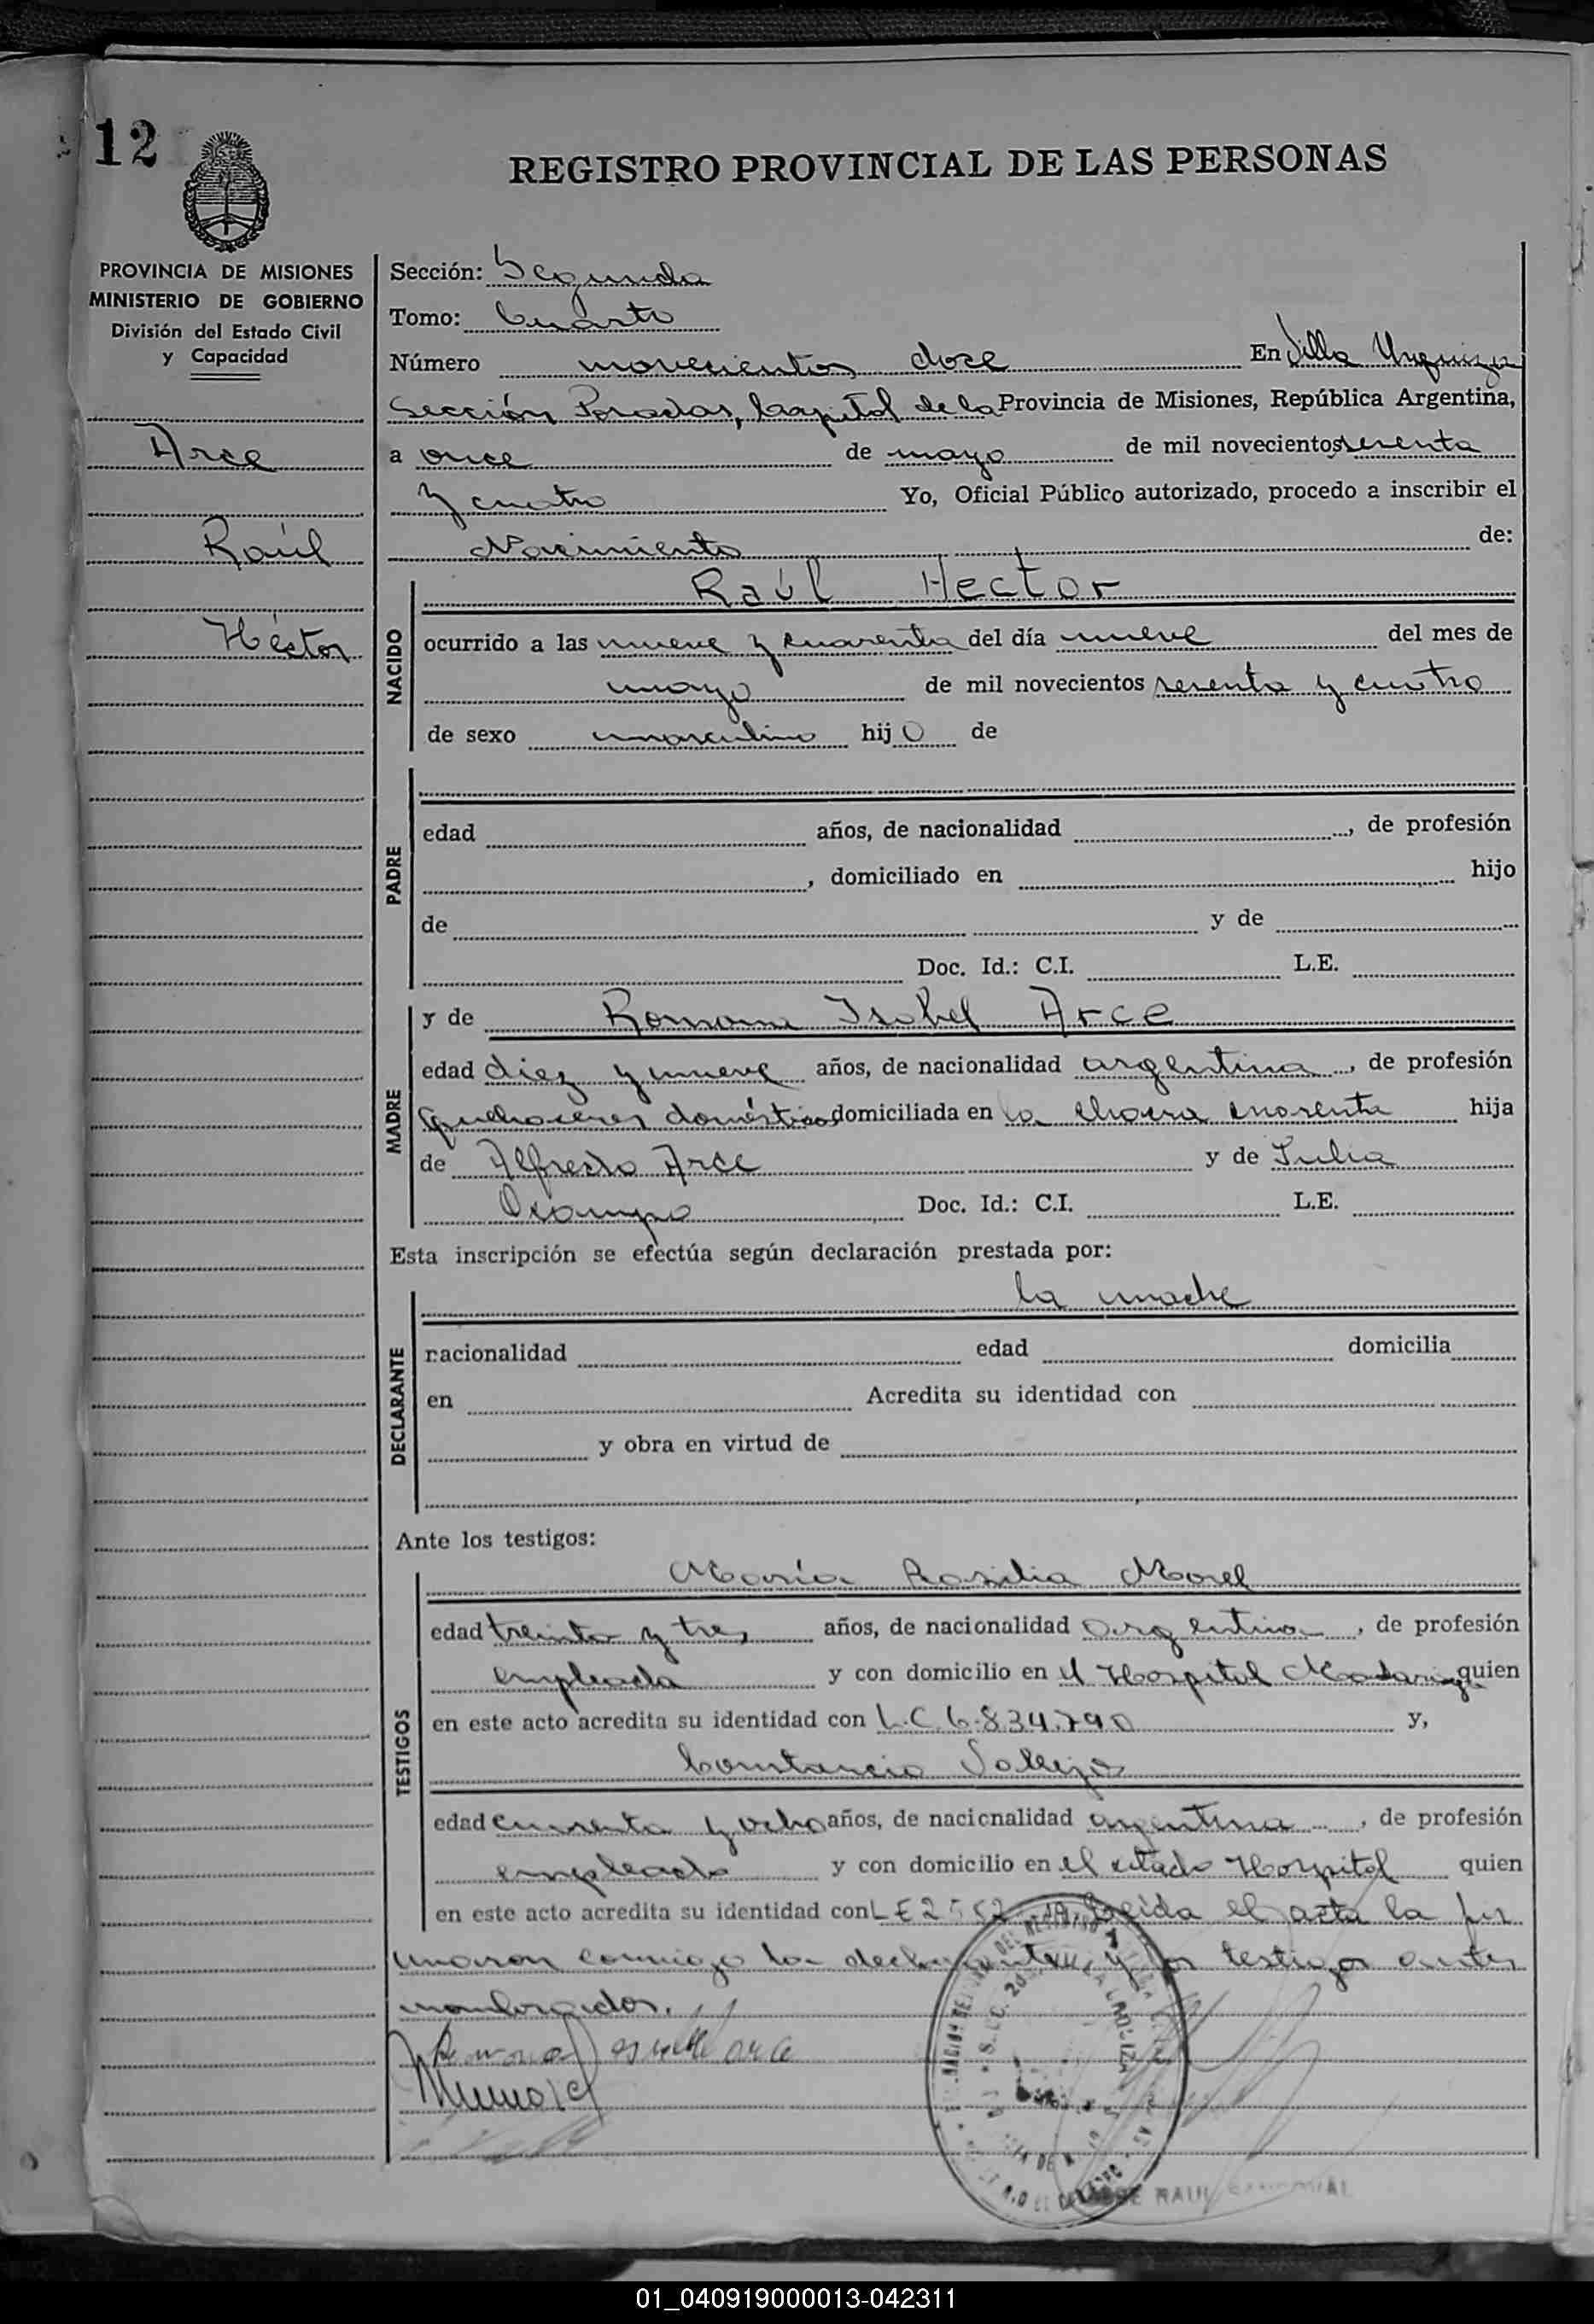 12
REGISTRO PROVINCIAL DE LAS PERSONAS
PROVINCIA DE MISIONES
MINISTERIO DE GOBIERNO
División del Estado Civil
y Capacidad
Arce
Raúl
Héctor
Sección: Segunda
Tomo: Cuarto
Número novecientos doce En Villa Urquiza
Sección Posadas, Capital de la Provincia de Misiones, República Argentina,
a once de mayo de mil novecientos sesenta
y cuatro Yo, Oficial Público autorizado, procedo a inscribir el
Nacimiento de:
NACIDO
Raúl Hector
ocurrido a las nueve y cuarenta del día nueve del mes de
mayo de mil novecientos sesenta y cuatro
de sexo masculino hijo de
PADRE
edad años, de nacionalidad , de profesión
, domiciliado en hijo
de y de
Doc. Id.: C.I. L.E.
MADRE
y de Romona Isabel Arce
edad diez y nueve años, de nacionalidad argentina, de profesión
quehaceres domésticos domiciliada en la chacra cuarenta hija
de Alfredo Arce y de Julia
Ocampo Doc. Id.: C.I. L.E.
Esta inscripción se efectúa según declaración prestada por:
DECLARANTE
la madre
nacionalidad edad domicilia
en Acredita su identidad con
y obra en virtud de
Ante los testigos:
TESTIGOS
María Rosilia Morel
edad treinta y tres años, de nacionalidad argentina, de profesión
empleada y con domicilio en el Hospital Madariaga quien
en este acto acredita su identidad con L.C. 6.834.790 y,
Constancio Vallejos
edad cuarenta y ocho años, de nacionalidad argentina, de profesión
empleado y con domicilio en el citado Hospital quien
en este acto acredita su identidad con L E Leida el acta la fir
maron conmigo la declarante y los testigos antes
nombrados.
arce
MMorel
RAUL
01_040919000013-042311